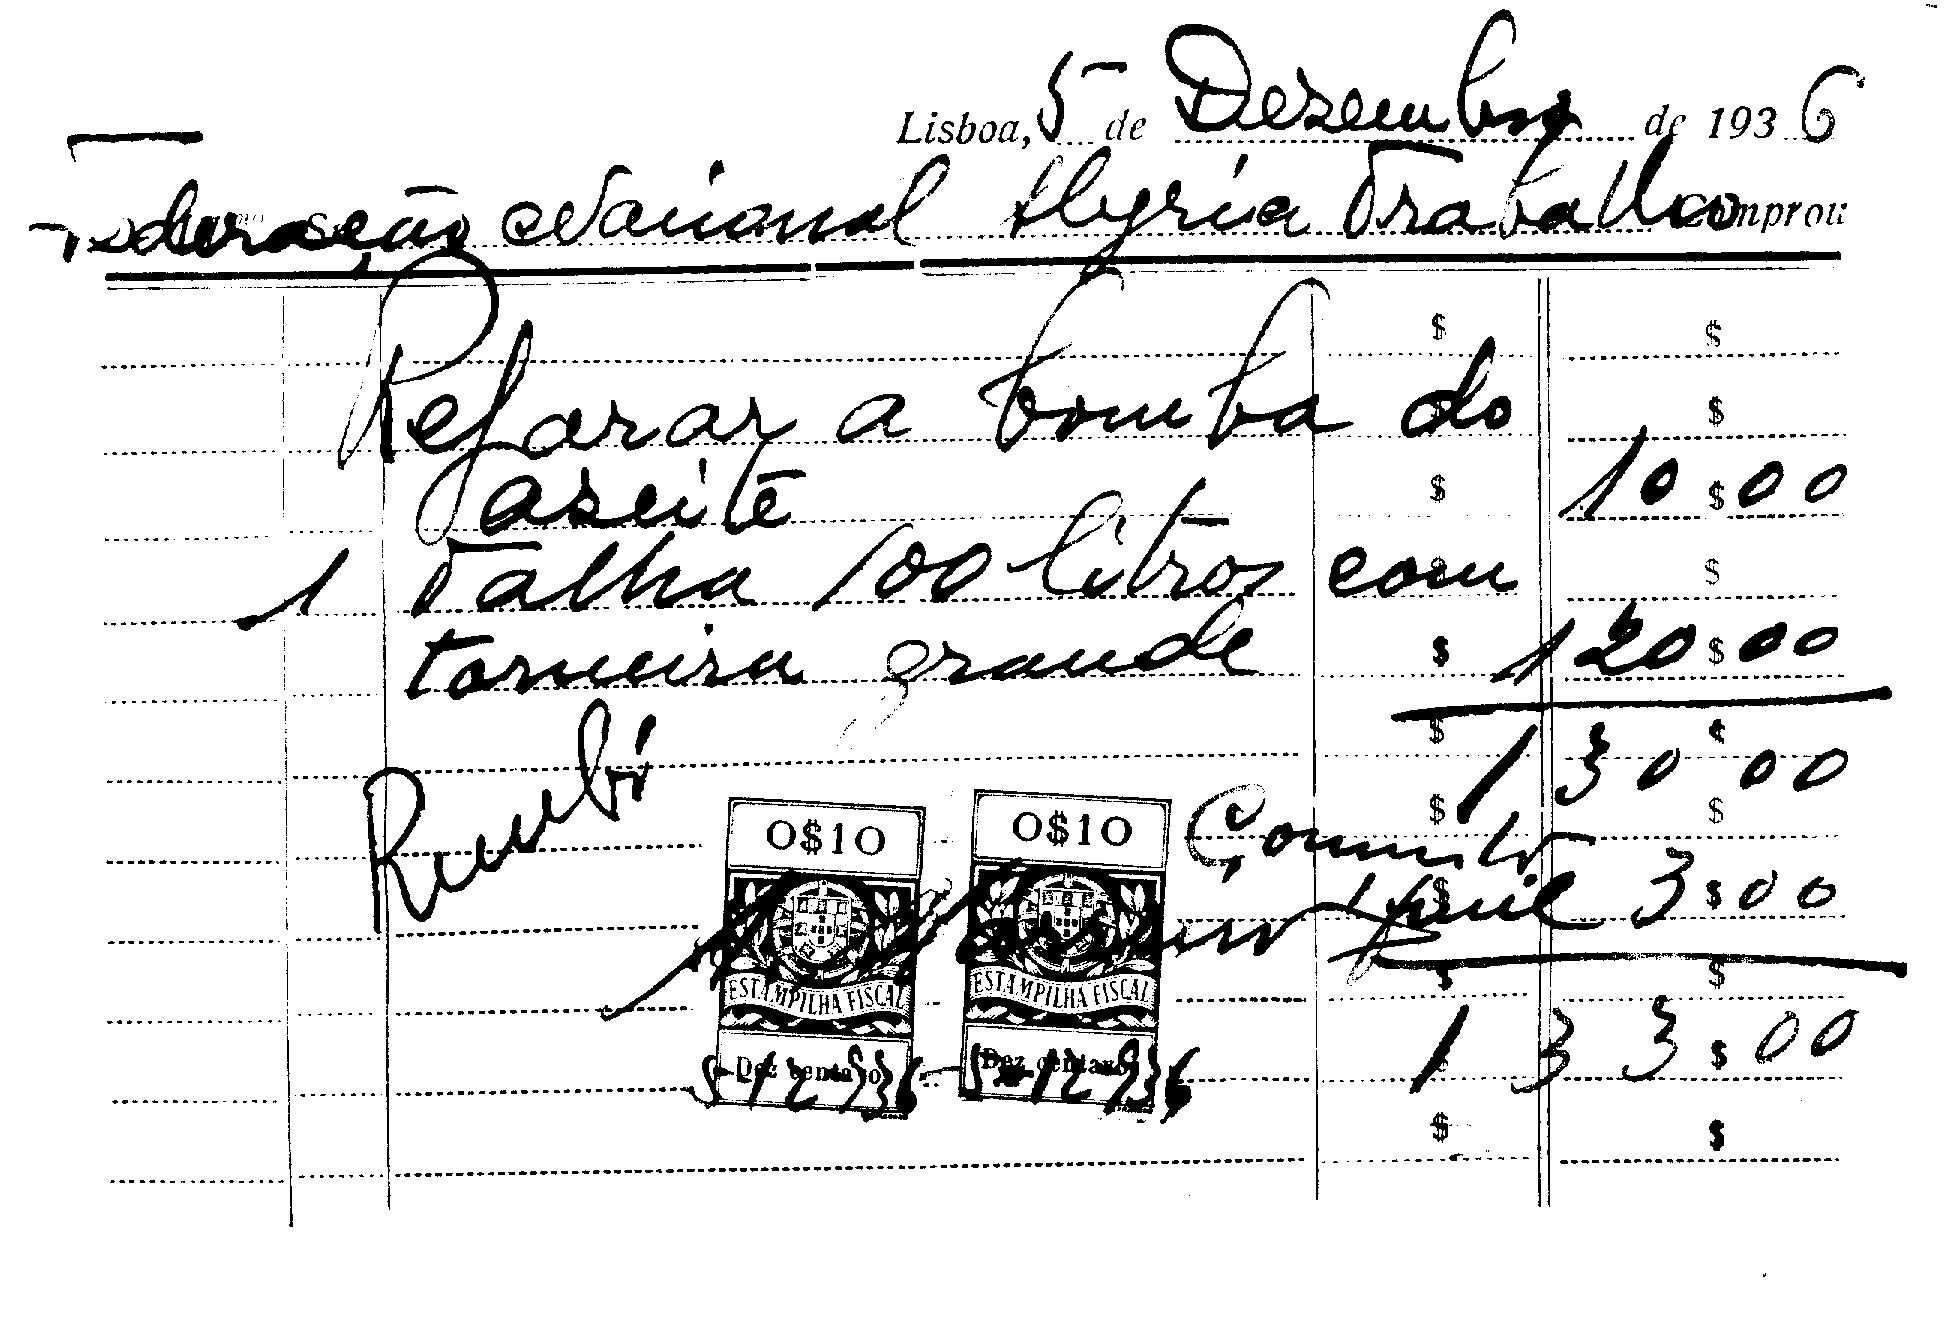 Lisboa, 5 de Dezembro de 1936
Federação Nacional Alegria Trabalho comprou
Reparar a bomba do $ $
azeite $ 10$00
1 Talha 100 litros com $
torneira grande $ 120$00
$ 130 00
Recebi
0$10 0$10 $ $
$ 3$00
ESTAMPILHA FISCAL ESTAMPILHA FISCAL $ $
133$00
Dez centavos Dez centavos
5-12-936 5-12-936
$ $